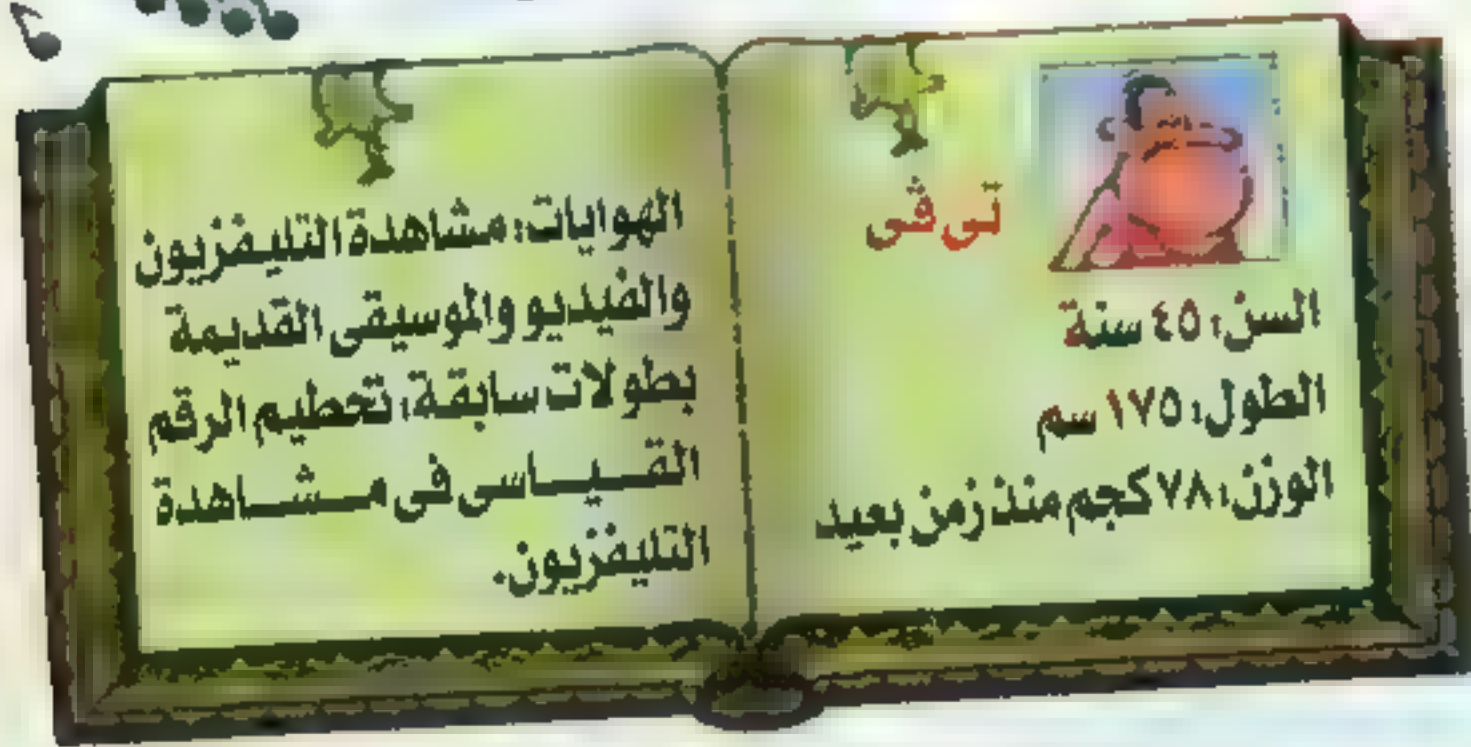 تى ڤى
السن: ٤٥ سنة
الطول: ١٧٥ سم
الوزن: ٧٨ كجم منذ زمن بعيد
الهوايات: مشاهدة التليفزيون
والفيديو والموسيقى القديمة
بطولات سابقة: تحطيم الرقم
القـــيـــاسى فى مـــشـــاهدة
التليفزيون.